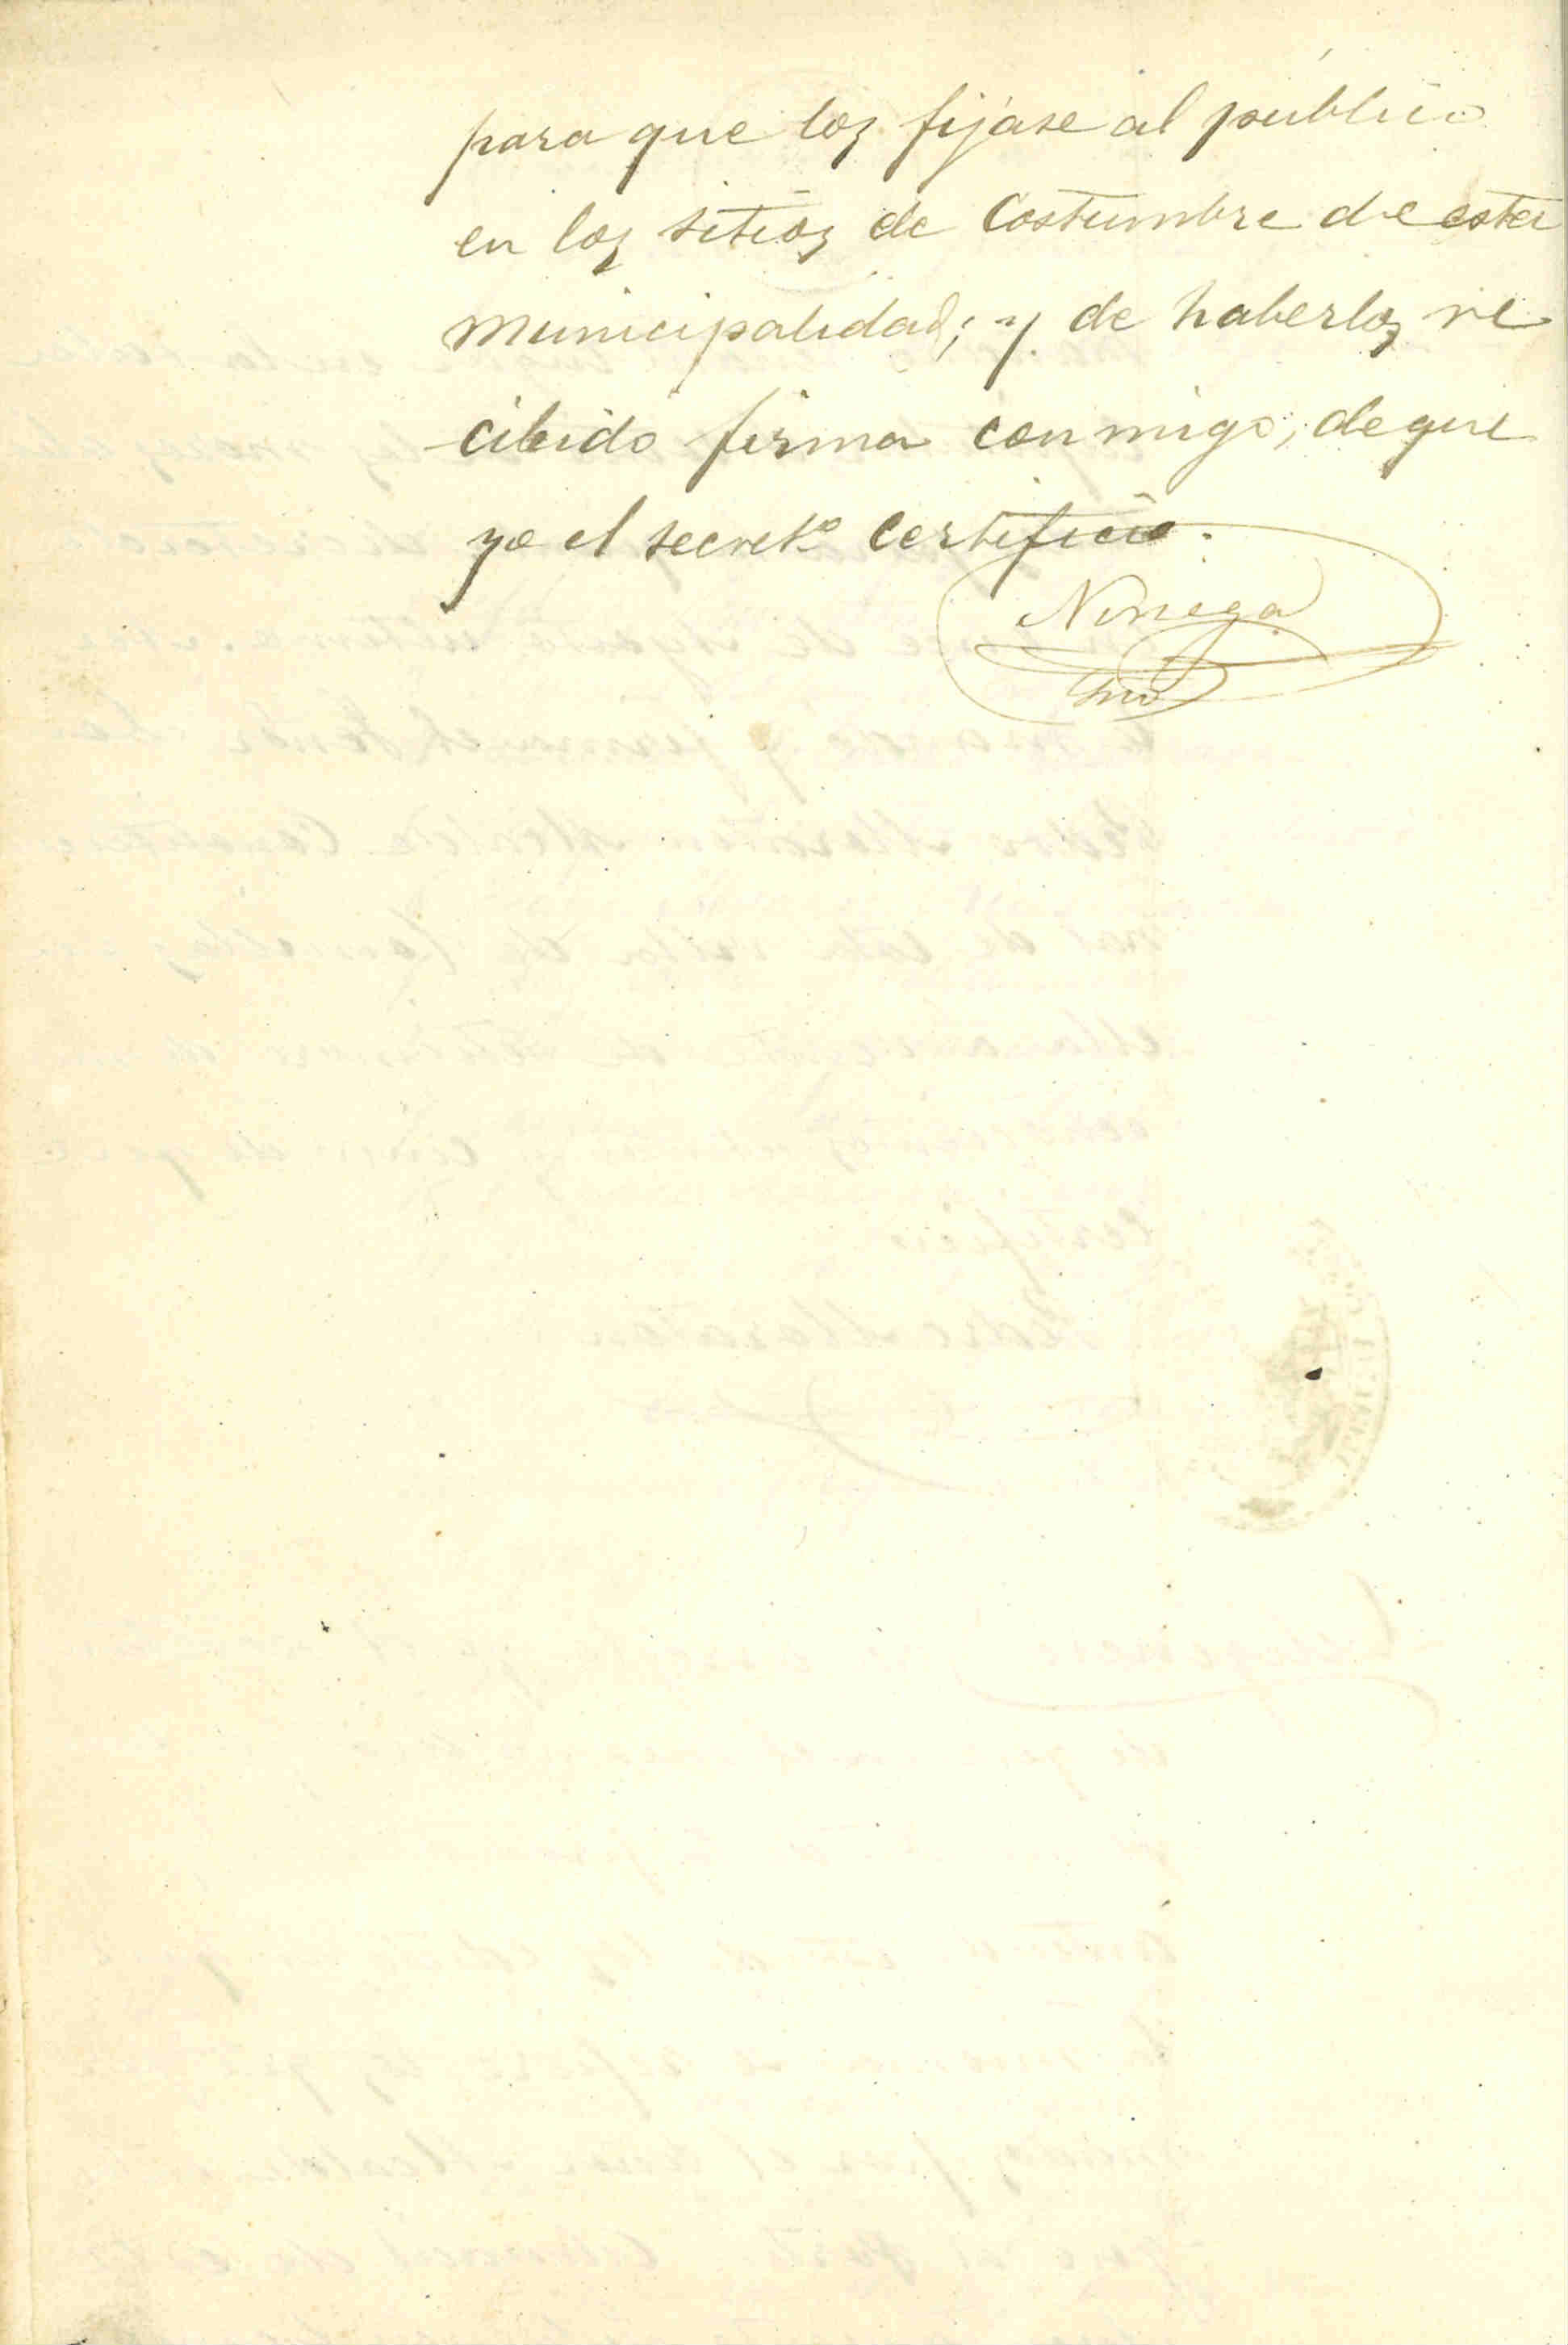 para que los fijase al público
en los sitios de Costumbre de esta
municipalidad; y de haberlos re
cibido firma con migo, de que
yo el secretº Certifico.